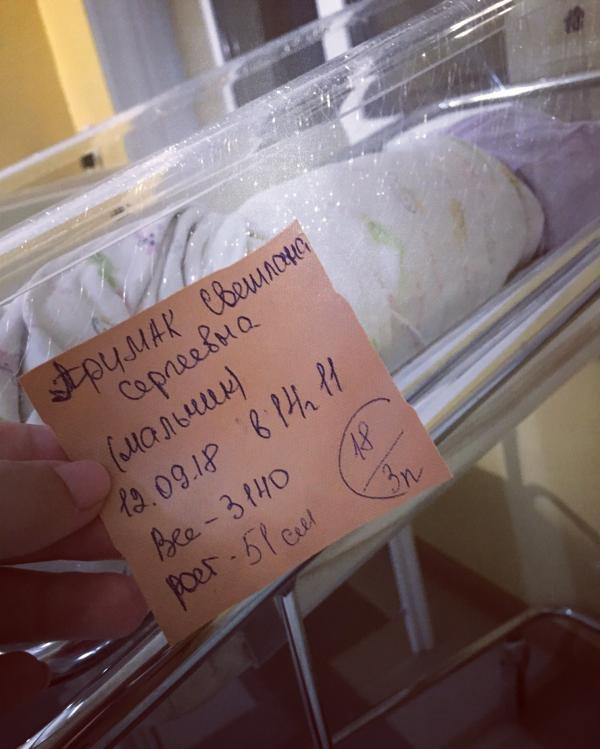 Примак Светлана
Сергеевна
(мальчик)
12.09.18 в 14ч 11
Вес - 3140
рост - 51 см
18
3п